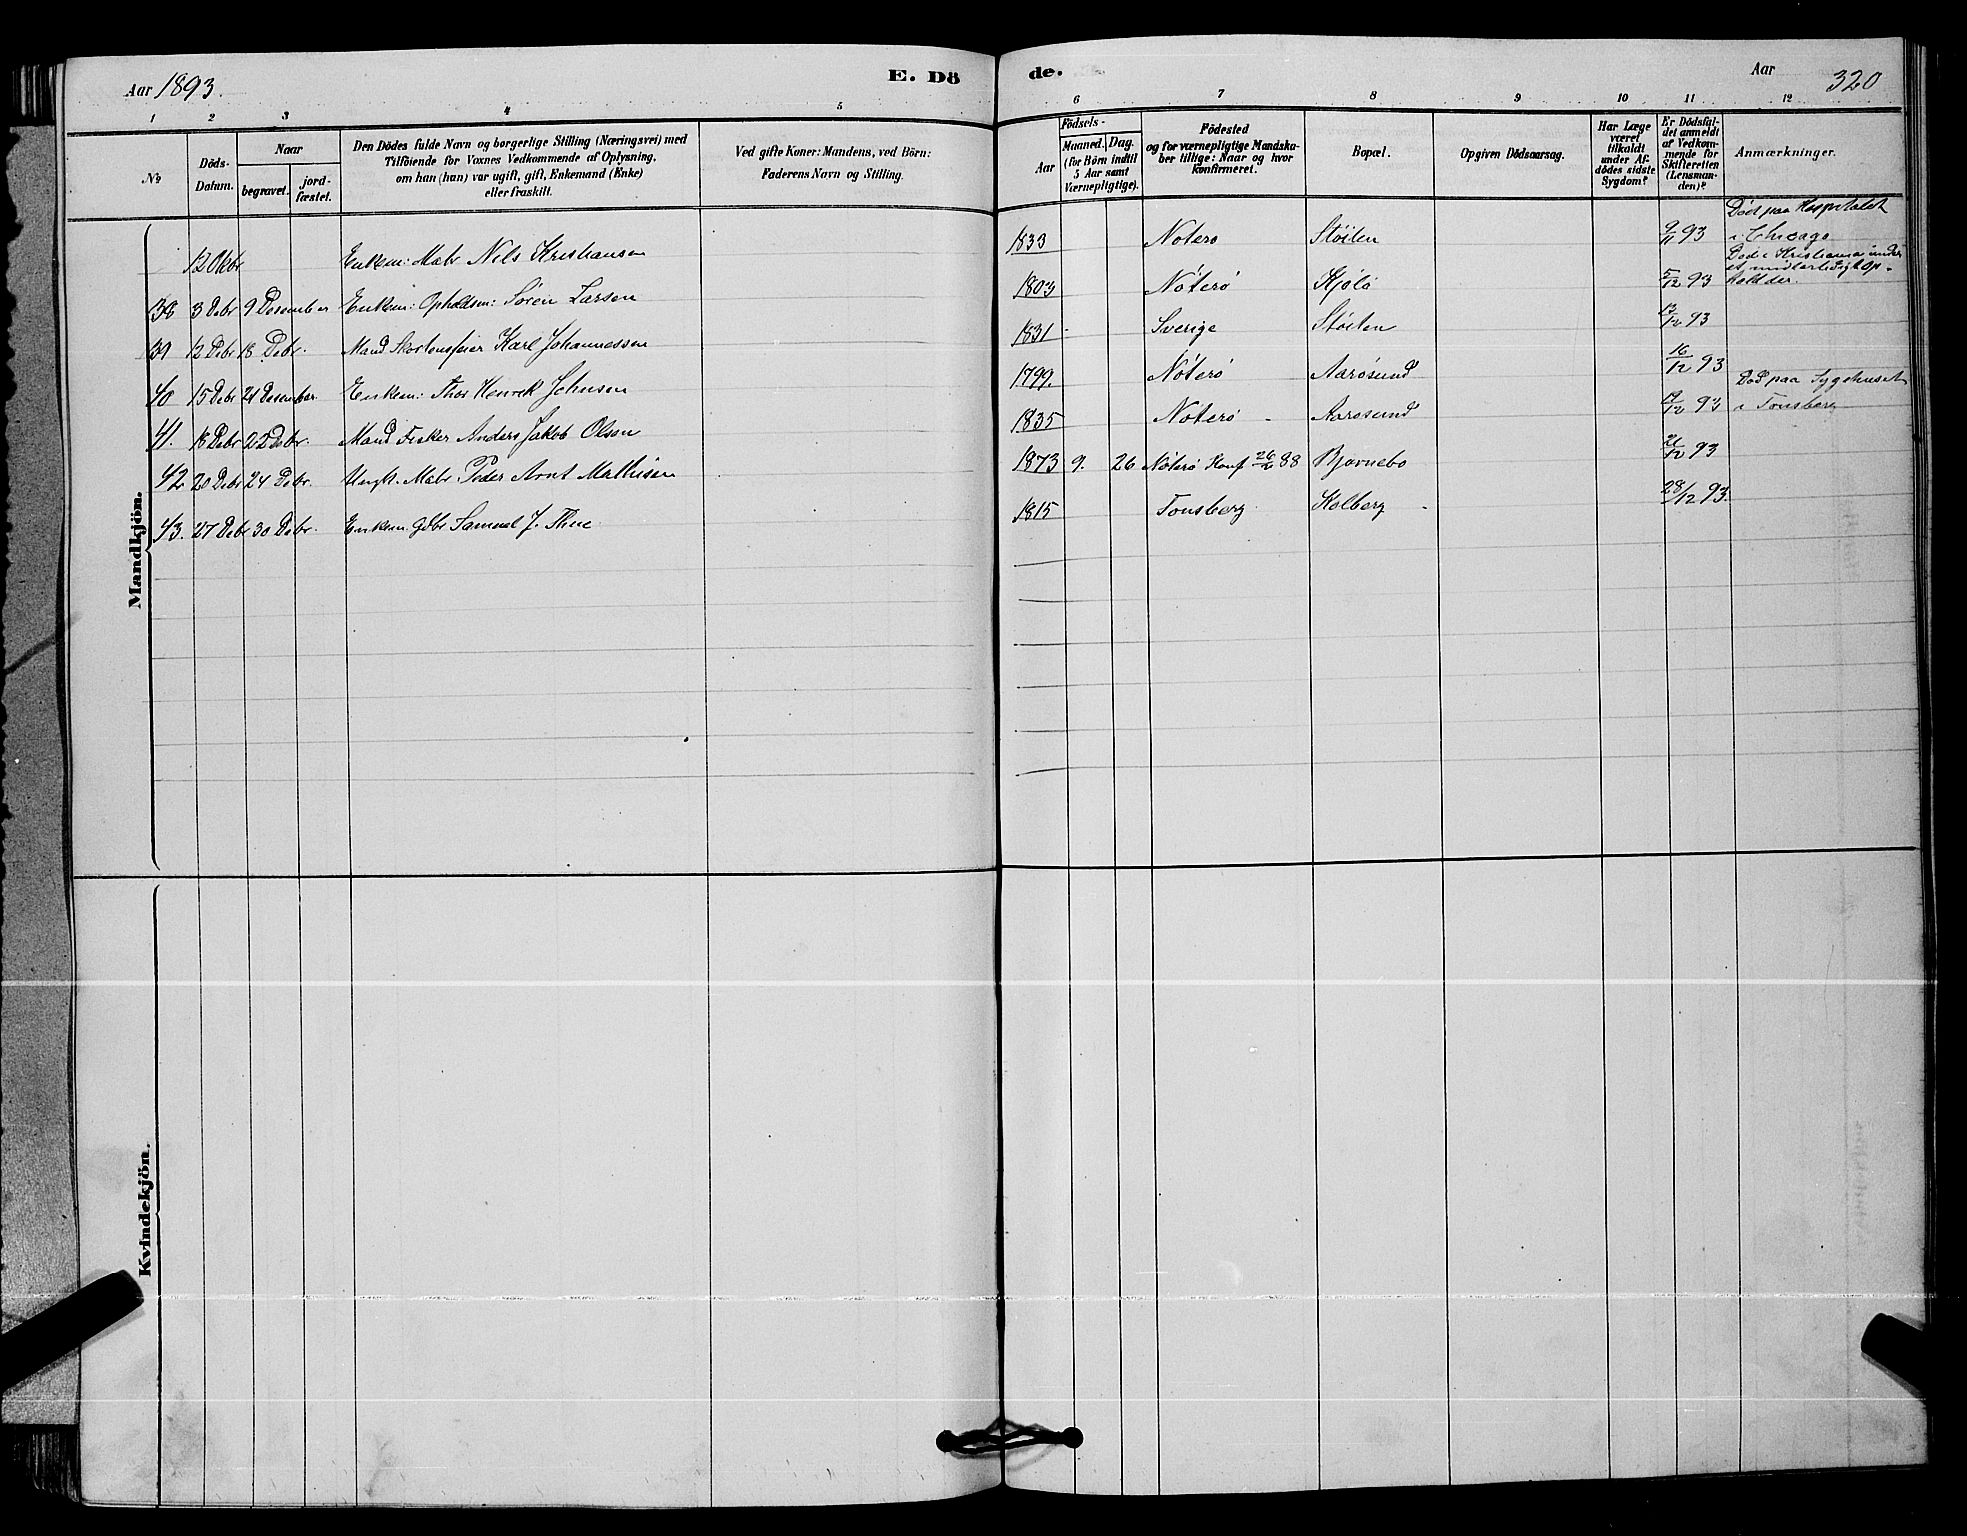 Aar 1893.
E. Dö
de.
Aar
320
1 2 3 4 5 6 7 8 9 10 11 12
No
Döds-
Datum.
Naar
begravet.
jord-
fæstet.
Den Dödes fulde Navn og borgerlige Stilling (Næringsvei) med
Tilföiende for Voxnes Vedkommende af Oplysning,
om han (hun) var ugift, gift, Enkemand (Enke)
eller fraskilt.
Ved gifte Koner: Mandens, ved Börn:
Faderens Navn og Stilling.
Födsels-
Aar
Maaned. Dag.
(for Börn indtil
5 Aar samt
Værnepligtige).
Födested
og for værnepligtige Mandska-
ber tillige: Naar og hvor
konfirmeret.
Bopæl.
Opgiven Dödsaarsag.
Har Læge
været
tilkaldt
under Af-
dödes sidste
Sygdom?
Er Dödsfal-
det anmeldt
af Vedkom-
mende for
Skifteretten
(Lensman-
den)?
Anmærkninger.
Mandkjön.
12 Oktbr Enkem: Mabr Nils Kristiansen 1833 Nøterø Støiten 9/11 93 Død paa Hospitalet
i Chicago
38 3 Debr 9 Desember Enkem: Opholdsm: Søren Larsen 1803 Nøterø Kjølø 5/12 93 Død i Kristiania under
et midlertidigt Op-
hold der.
39 12 Debr 18 Debr. Mand Skorstensfeier Karl Johannessen 1831 Sverige Støiten 13/12 93
40 15 Debr 21 Desember Enkem: Thor Henrik Johnsen 1799. Nøterø Aarøsund 16/12 93
41. 18 Debr 22 Debr. Mand Fisker Anders Jakob Olsen 1835 Nøterø Aarøsund 19/12 93 Død paa Sygehuset
i Tønsberg
42 20 Debr 24 Debr. Ungk. Mabr Peder Arnt Mathisen 1873 9. 26 Nøterø Konf 88 Bjørnebo 21/12 93
43. 27 Debr 30 Debr. Enkem: Gdbr Samuel J. Thue 1815 Tønsberg Kolberg 28/12 93.
Kvindekjön.